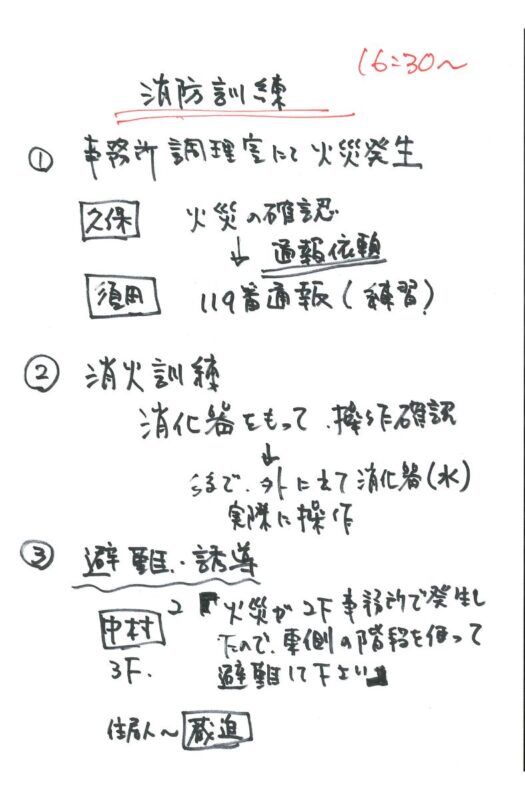 16:30〜
消防訓練
① 事務所 調理室にて 火災発生
久保 火災の確認
↓ 通報依頼
須田 119番通報(練習)
② 消火訓練
消化器をもって、操作確認
↓
外に出て 消化器(水)
実際に操作
③ 避難・誘導
中村 2 「火災が 2F 事務所で発生し
3F. たので、東側の階段を使って
避難して下さい」
住居人〜 蔵迫